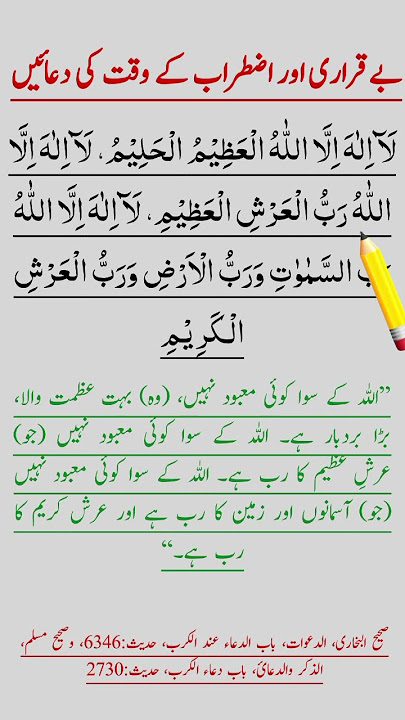 بے قراری اور اضطراب کے وقت کی دعائیں
لَآ اِلٰهَ اِلَّا اللّٰهُ الْعَظِيْمُ الْحَلِيْمُ، لَآ اِلٰهَ اِلَّا
اللّٰهُ رَبُّ الْعَرْشِ الْعَظِيْمِ، لَآ اِلٰهَ اِلَّا اللّٰهُ
رَبُّ السَّمٰوٰتِ وَرَبُّ الْاَرْضِ وَرَبُّ الْعَرْشِ
الْكَرِيْمِ
”اللہ کے سوا کوئی معبود نہیں، (وہ) بہت عظمت والا،
بڑا بردبار ہے۔ اللہ کے سوا کوئی معبود نہیں (جو)
عرشِ عظیم کا رب ہے۔ اللہ کے سوا کوئی معبود نہیں
(جو) آسمانوں اور زمین کا رب ہے اور عرش کریم کا
رب ہے۔“
صحیح البخاری، الدعوات، باب الدعاء عند الکرب، حدیث:6346، وصحیح مسلم،
الذکر والدعائ، باب دعاء الکرب، حدیث:2730